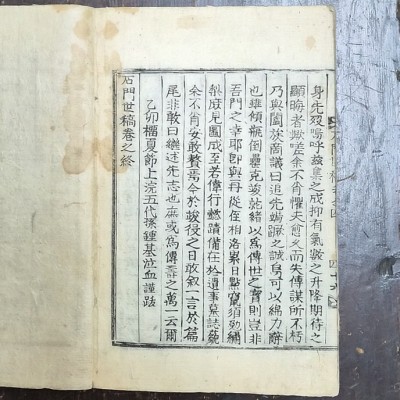 身先歿嗚呼玆集之成抑有氣數之升降期待之
顯晦者歟嗟余不肖懼夫愈久而失傳謀所不朽
乃與闔族商議曰追先竭蹶之誠烏可以綿力辭
也雖傾甁倒罍克竣乾緒以爲傳世之寶則豈非
吾門之幸耶卽與再從侄相洛累日點竄須勉綱
䂓庶見圓成至若偉行懿蹟備在於遺事墓誌銘
余不肖安敢贅焉今於竣役之日敢叙一言於篇
尾非敢曰繼述先志也庶或爲傳壽之萬一云爾
乙卯榴夏節上浣五代孫鍾基泣血謹跋
石門世稿卷之終